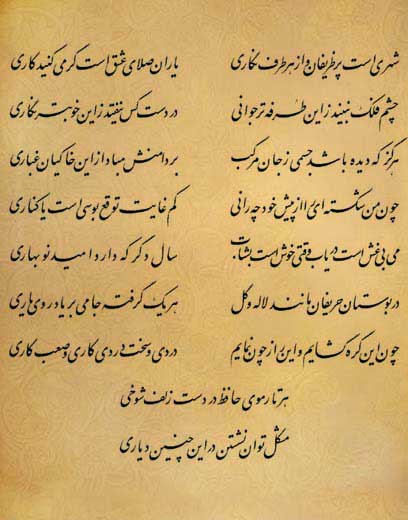 شهری است پر ظریفان و از هر طرف نگاری یاران صلای عشق است گر می کنید کاری
چشم فلک نبیند زاین طرفه تر جوانی در دست کس نیفتد زاین خوبتر نگاری
هرگز که دیده باشد جسمی ز جان مرکب بر دامنش مبادا زاین خاکیان غباری
چون من شکسته ای را از پیش خود چه رانی کم غایت توقع بوسی است یا کناری
می بی غش است دریاب وقتی خوش است بشتاب سال دگر که دارد امید نوبهاری
در بوستان حریفان مانند لاله و گل هر یک گرفته جامی بر یاد روی یاری
چون این گره گشایم واین راز چون نمایم دردی و سخت دردی کاری و صعب کاری
هر تار موی حافظ در دست زلف شوخی
مشکل توان نشستن در این چنین دیاری